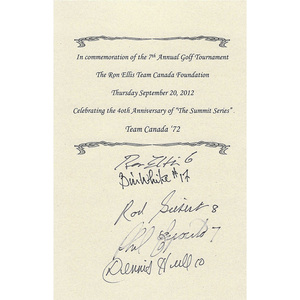 In commemoration of the 7th Annual Golf Tournament
The Ron Ellis Team Canada Foundation
Thursday September 20, 2012
Celebrating the 40th Anniversary of "The Summit Series".
Team Canada '72
Ron Ellis 6
Bill White #17
Rod Seibert 8
Phil Esposito 7
Dennis Hull 10